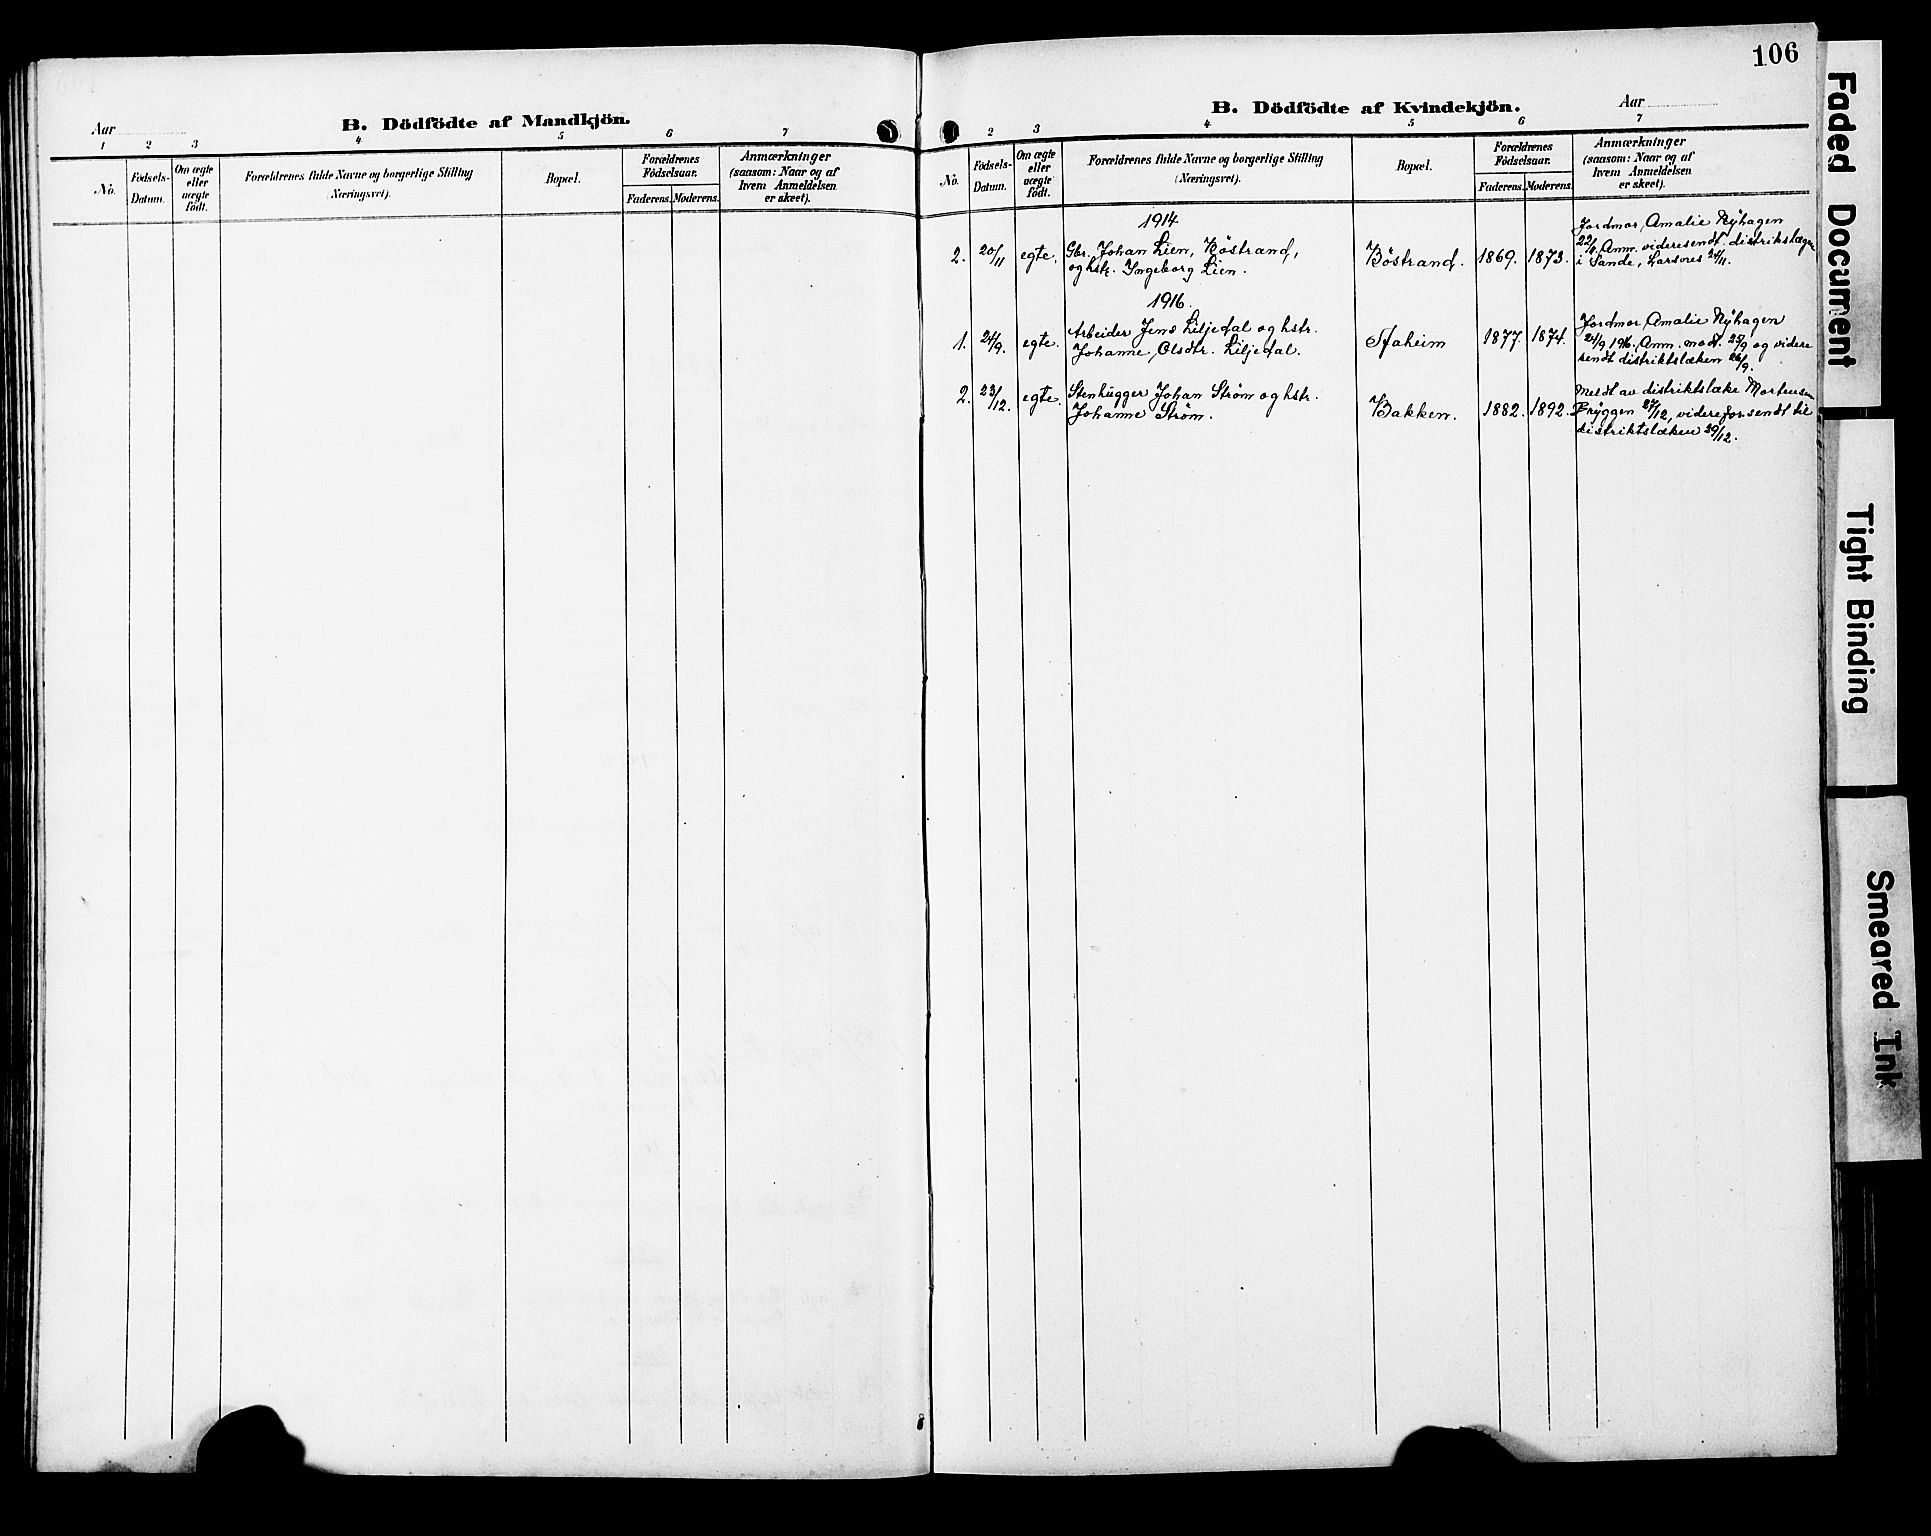 Aar
B. Dödfödte af Mandkjön.
1 2 3 4 5 6 7
No.
Födsels-
Datum.
Om ægte
eller
uægte
födt.
Forældrenes fulde Navne og borgerlige Stilling
(Næringsvei).
Bopæl.
Forældrenes
Födselsaar.
Faderens. Moderens.
Anmærkninger
(saasom: Naar og af
hvem Anmeldelsen
er skeet).
106
B. Dödfödte af Kvindekjön.
Aar
2 3 4 5 6 7
No.
Födsels-
Datum.
Om ægte
eller
uægte
födt.
Forældrenes fulde Navne og borgerlige Stilling
(Næringsvei).
Bopæl.
Forældrenes
Födselsaar.
Faderens. Moderens.
Anmærkninger
(saasom: Naar og af
hvem Anmeldelsen
er skeet).
1914
2. 20/11 egte. Gbr. Johan Lien, Böstrand,
og hstr. Ingeborg Lien.
Böstrand. 1869. 1873.
Jordmor Amalie Nyhagen
22/11 Anm. videresendt distriktslægen
i Sande, Larsnes 24/11.
1916.
1. 24/9. egte. Arbeider Jens Liljedal og hstr.
Johanne Olsdtr. Liljedal.
Aaheim 1877. 1874.
Jordmor Amalie Nyhagen
24/9 1916. Anm. modt. 25/9 og videre
sendt distriktslæken 26/9.
2. 23/12. egte. Stenhugger Johan Ström og hstr.
Johanne Ström.
Bakken. 1882. 1892.
Meldt av distriktslæke Mortensen
Bryggen 27/12, videreforsendt til
distriktslæken 29/12.
Faded Document
Tight Binding
Smeared Ink